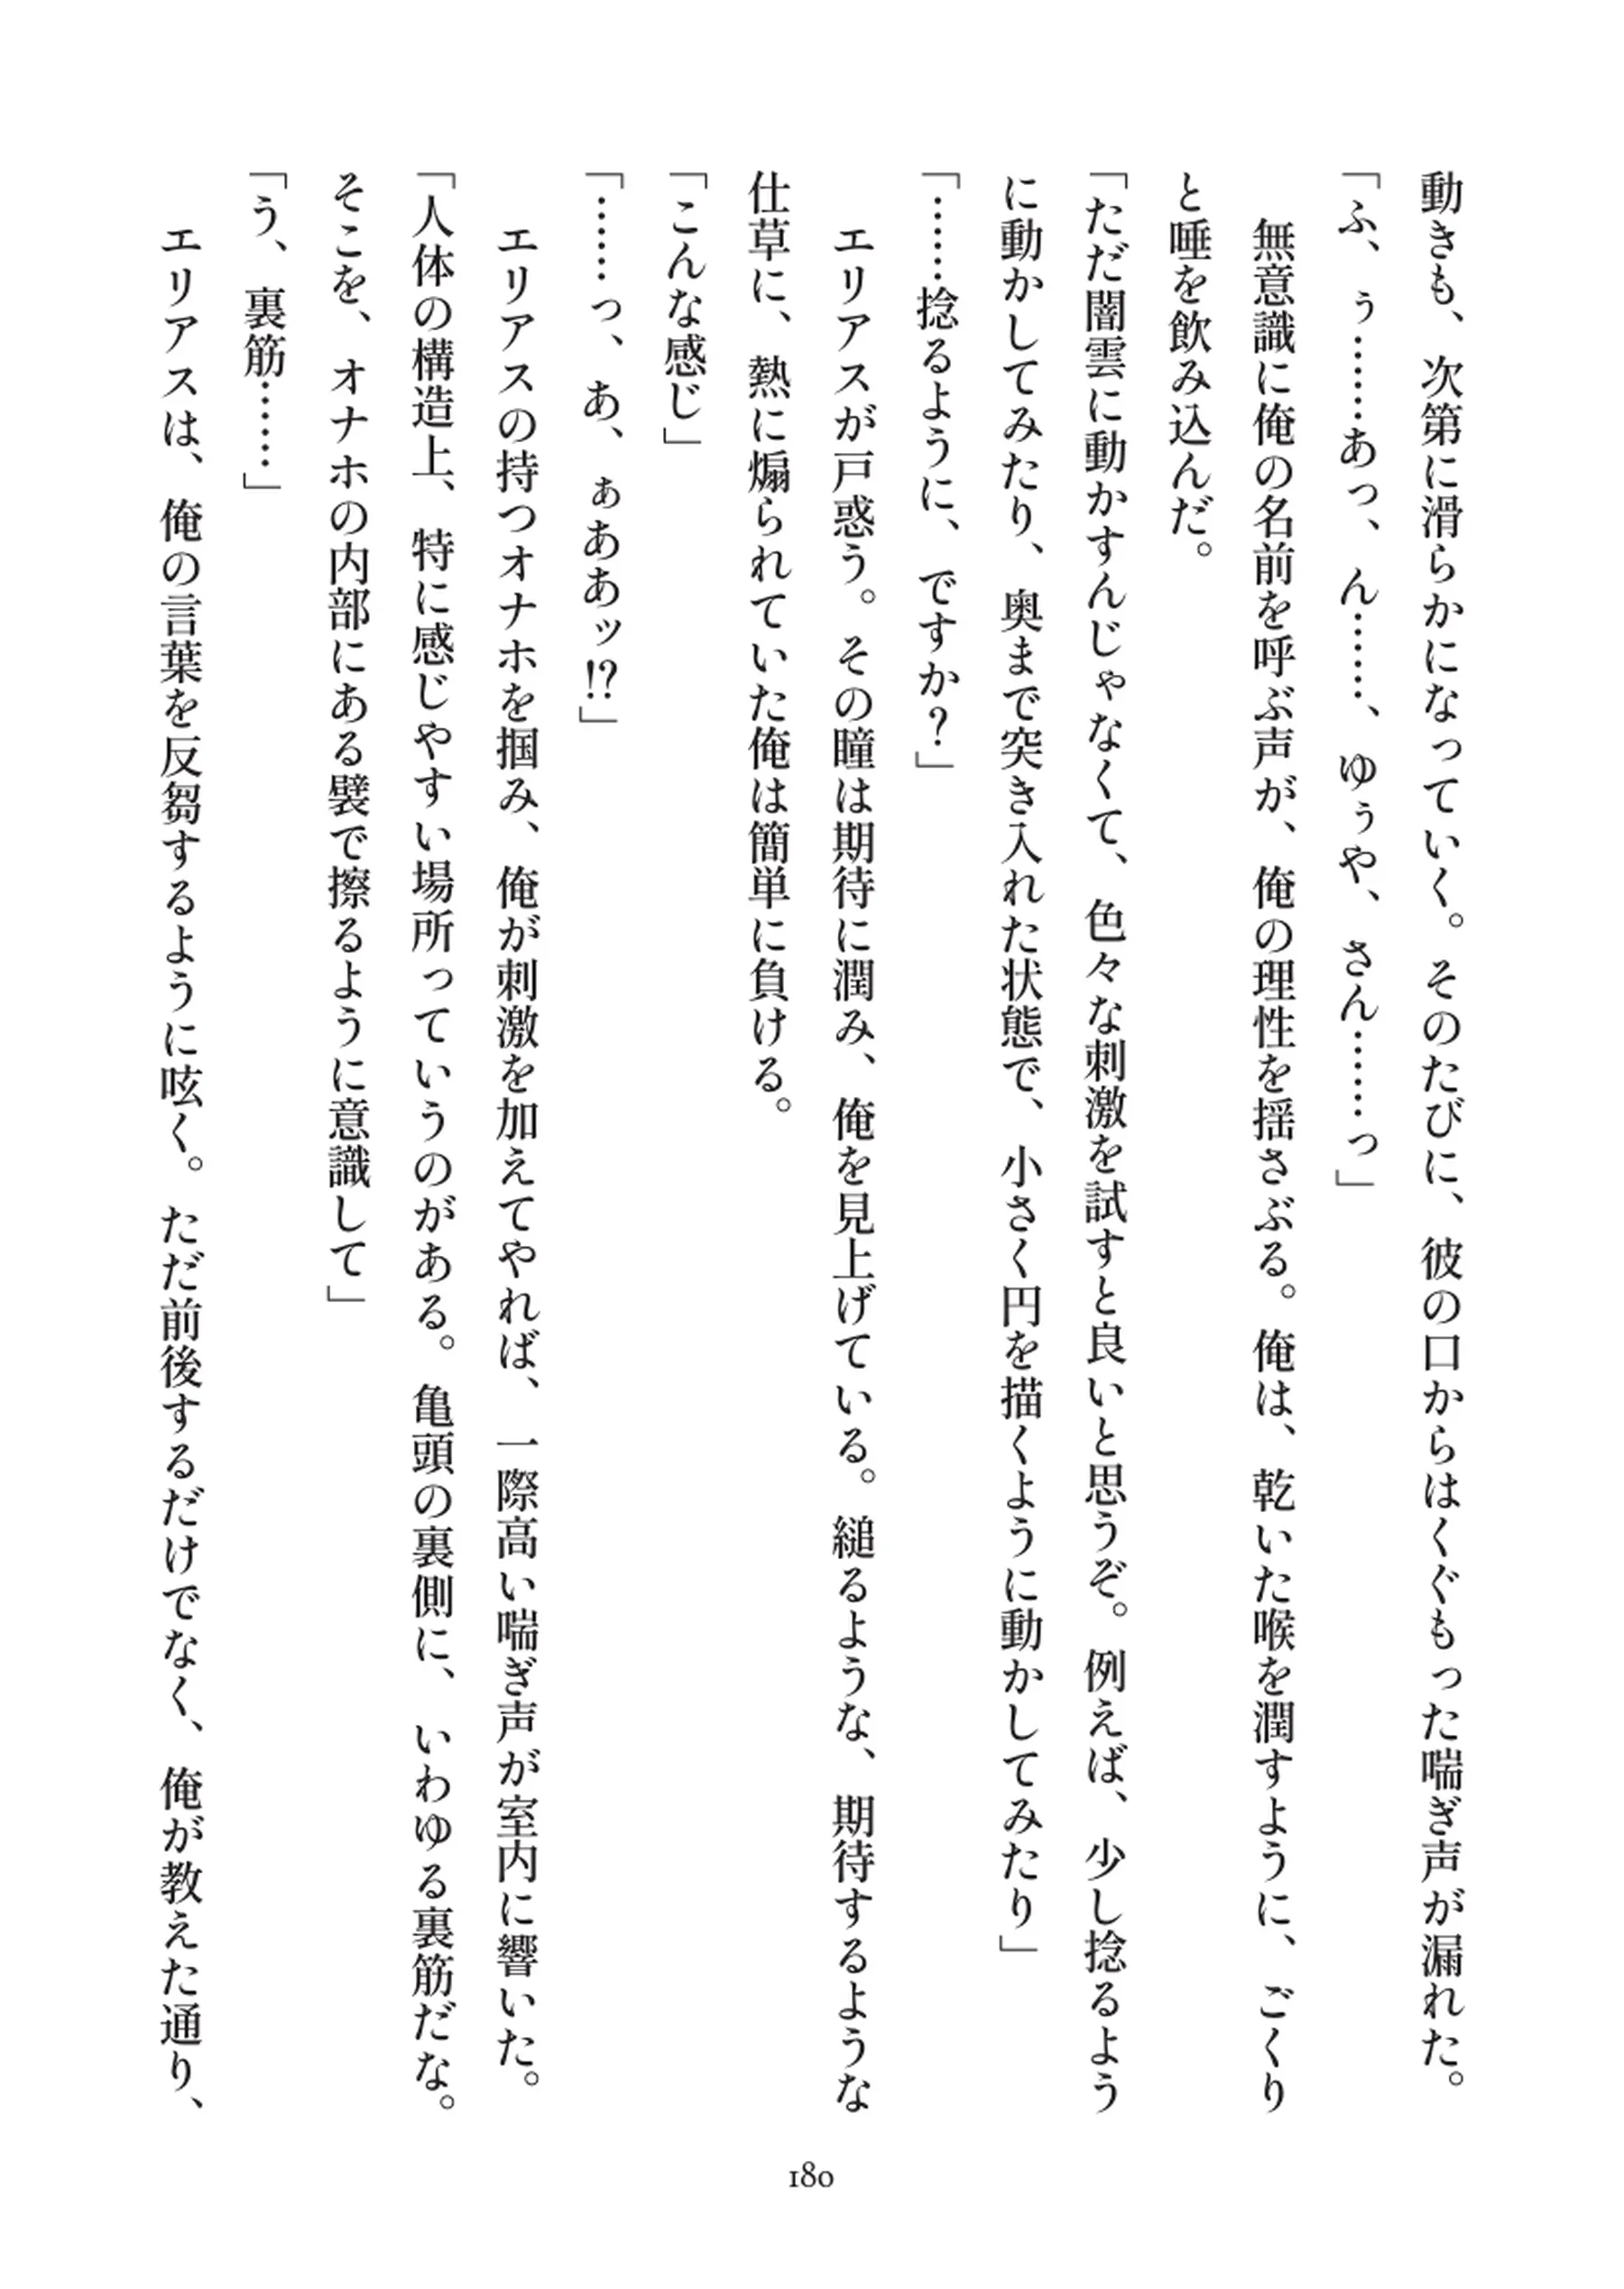 動きも、次第に滑らかになっていく。そのたびに、彼の口からはくぐもった喘ぎ声が漏れた。
「ふ、ぅ………あっ、ん………、ゆぅや、さん………っ」
　無意識に俺の名前を呼ぶ声が、俺の理性を揺さぶる。俺は、乾いた喉を潤すように、ごくり
と唾を飲み込んだ。
「ただ闇雲に動かすんじゃなくて、色々な刺激を試すと良いと思うぞ。例えば、少し捻るよう
に動かしてみたり、奥まで突き入れた状態で、小さく円を描くように動かしてみたり」
「……捻るように、ですか？」
　エリアスが戸惑う。その瞳は期待に潤み、俺を見上げている。縋るような、期待するような
仕草に、熱に煽られていた俺は簡単に負ける。
「こんな感じ」
「……っ、あ、ぁああッ!?」
　エリアスの持つオナホを掴み、俺が刺激を加えてやれば、一際高い喘ぎ声が室内に響いた。
「人体の構造上、特に感じやすい場所っていうのがある。亀頭の裏側に、いわゆる裏筋だな。
そこを、オナホの内部にある襞で擦るように意識して」
「う、裏筋……」
　エリアスは、俺の言葉を反芻するように呟く。ただ前後するだけでなく、俺が教えた通り、
180